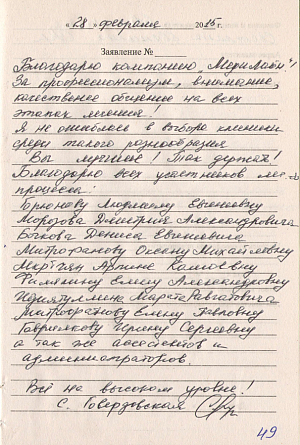 «28» февраля 2015 г.
Заявление №
Благодарю компанию „МедиЛайн"!
За профессионализм, внимание,
качественное общение на всех
этапах лечения!
Я не ошиблась в выборе клиники
среди такого разнообразия
Вы лучшие! Так держать!
Благодарю всех участников
процесса:
Брюнову Людмилу Евгеньевну
Морозова Дмитрия Александровича
Бочкова Дениса Евгеньевича
Митрофанову Оксану Михайловну
Мкртчян Армине Камоевну
Филькину Елену Александровну
Идиятуллина Марата Равгатовича
Митрофанову Елену Павловну
Гаврилкову Ирину Сергеевну
а так же ассистентов и
администраторов.
Всё на высоком уровне!
С. Говердовская
49